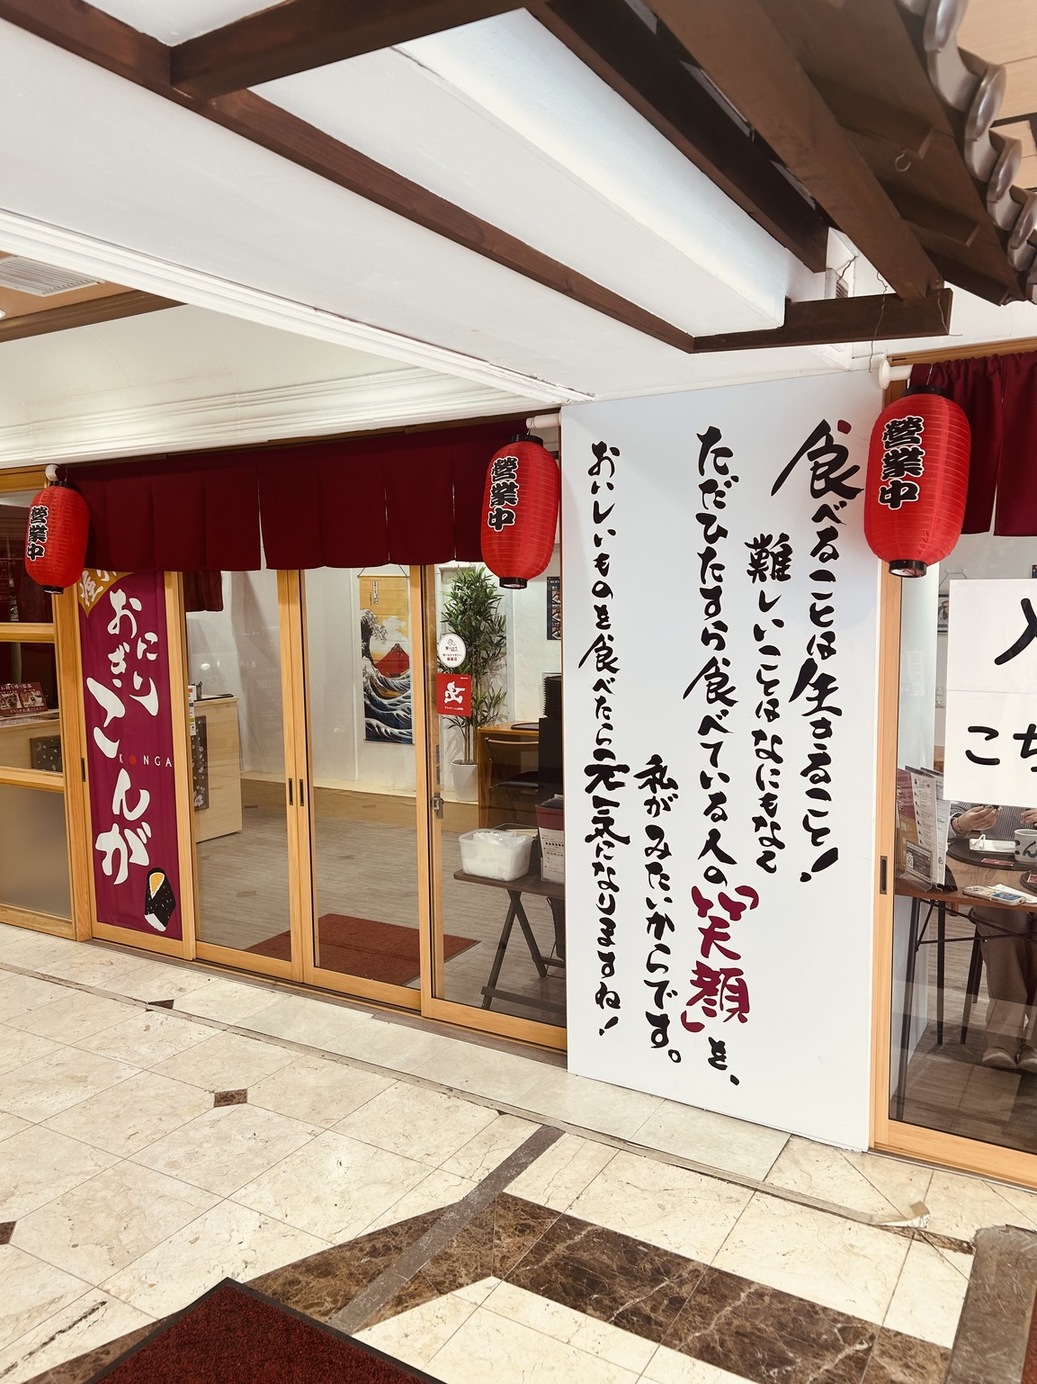 食べることは生きること!
難しいことはなにもなく
ただひたすら食べている人の「笑顔」を、
私がみたいからです。
おいしいものを食べたら元気になりますね!
営業中
営業中
営業中
おにぎり
こんが
KONGA
こち